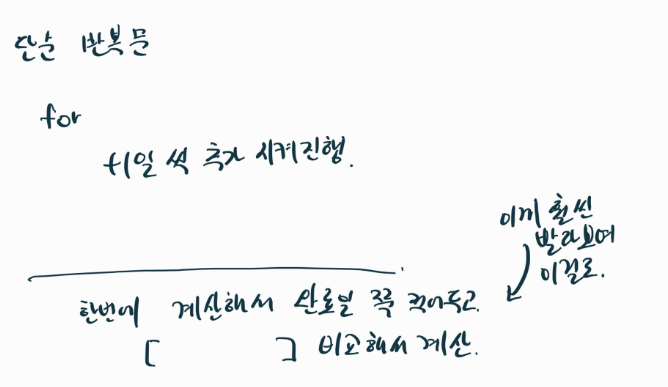 단순 반복문
for
+1일 씩 추가 시켜진행.
한번에 계산해서 완료일 쭉 찍어두고.
[ ] 비교해서 계산.
이게 훨씬
빨라보여
이걸로.